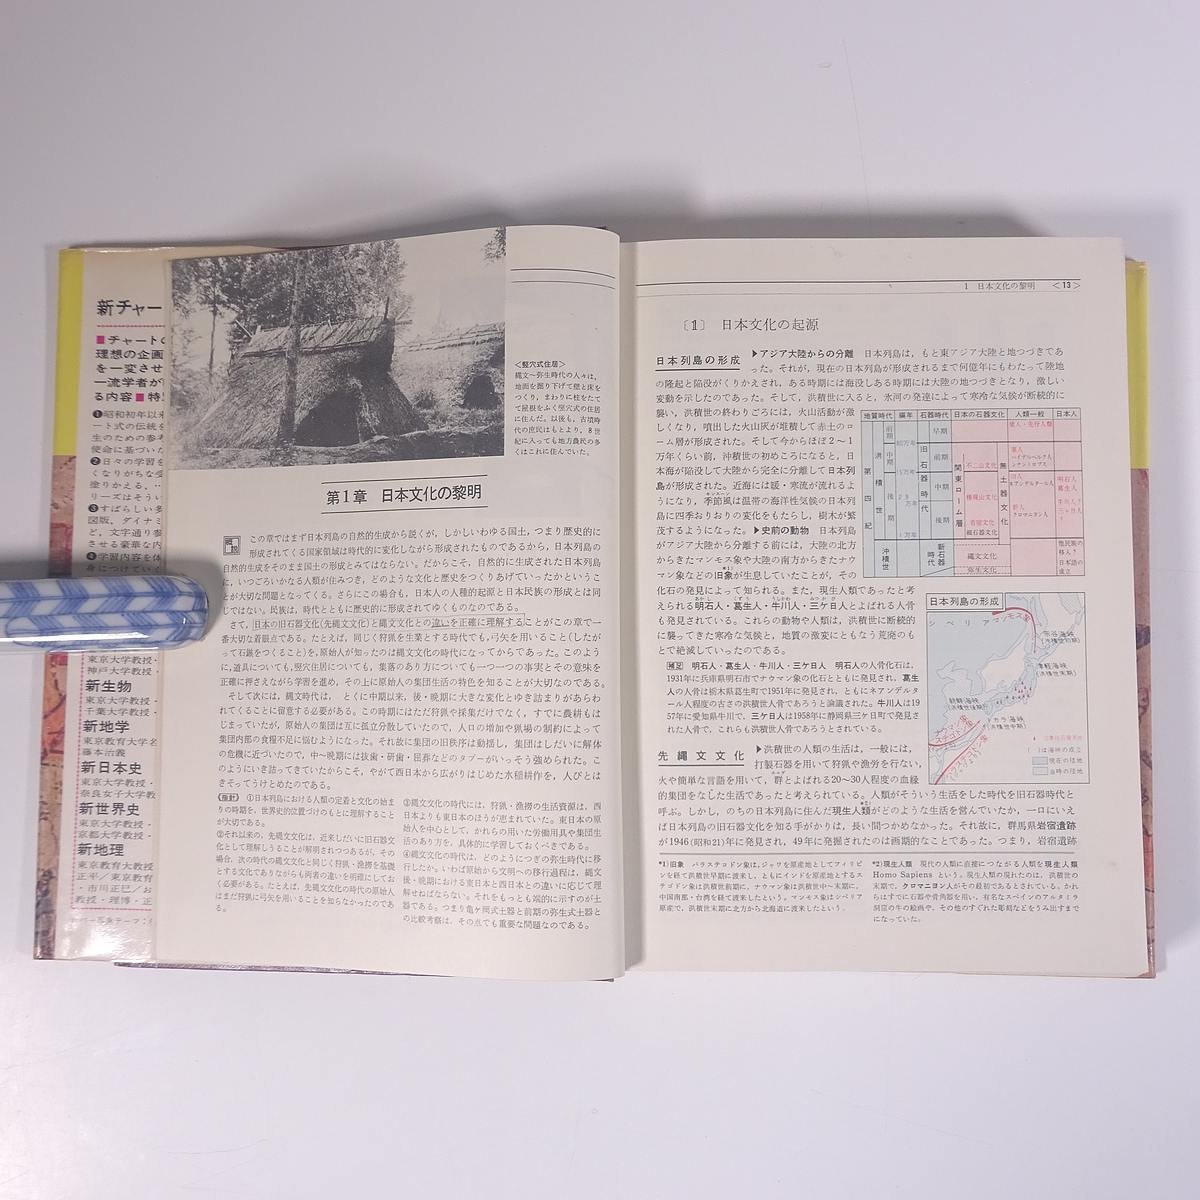 新チャー
■チャートの
理想の企画
を一変させ
一流学者が
る内容■特
❶昭和初年以来
ート式の伝統を
生のための参考
使命に基づいた
❷日々の学習を
くなりがちな受
塗りかえる。
リーズはそうい
❸すばらしい多
図版, ダイナミ
ど, 文字通り参
させる豪華な内
❹学習内容を体
身につけていく
東京大学教授・
神戸大学教授・
新生物
東京大学教授・
千葉大学教授・
新地学
東京教育大学名
藤本治義
新日本史
東京大学教授・
奈良女子大学教
新世界史
東京大学教授・
京都大学教授・
新地理
東京教育大教授
正平／東京教育
・市川正巳／お
教授・理博・正
＜竪穴式住居＞
縄文〜弥生時代の人々は,
地面を掘り下げて壁と床を
つくり, まわりに柱をたて
て屋根をふく竪穴式の住居
に住んだ。以後も, 古墳時
代の庶民はもとより, 8世
紀に入っても地方農民の多
くはこれに住んでいた。
第1章 日本文化の黎明
概説
この章ではまず日本列島の自然的生成から説くが, しかしいわゆる国土, つまり歴史的に
形成されてくる国家領域は時代的に変化しながら形成されたものであるから, 日本列島の
自然的生成をそのまま国土の形成とみてはならない。だからこそ, 自然的に生成された日本列島
に, いつごろいかなる人類が住みつき, どのような文化と歴史をつくりあげていったかというこ
とが大切な問題となってくる。さらにこの場合も, 日本人の人種的起源と日本民族の形成とは同
じではない。民族は, 時代とともに歴史的に形成されてゆくものなのである。
さて, 日本の旧石器文化(先縄文文化)と縄文文化との違いを正確に理解することがこの章で一
番大切な着眼点である。たとえば, 同じく狩猟を生業とする時代でも, 弓矢を用いること(したが
って石鏃をつくること)を, 原始人が知ったのは縄文文化の時代になってからであった。このよう
に, 道具についても, 竪穴住居についても, 集落のあり方についても一つ一つの事実とその意味を
正確に押さえながら学習を進め, その上に原始人の集団生活の特色を知ることが大切なのである。
そして次には, 縄文時代は, とくに中期以来, 後・晩期に大きな変化とゆき詰まりがあらわ
れてくることに留意する必要がある。この時期にはただ狩猟や採集だけでなく, すでに農耕もは
じまっていたが, 原始人の集団は互に孤立分散していたので, 人口の増加や猟場の制約によって
集団内部の食糧不足に悩むようになった。それ故に集団の旧秩序は動揺し, 集団はしだいに解体
の危機に近づいたので, 中〜晩期には抜歯・研歯・屈葬などのタブーがいっそう強められた。こ
のようにいき詰ってきていたからこそ, やがて西日本から広がりはじめた水稲耕作を, 人びとは
きそってうけとめたのである。
指針 ①日本列島における人類の定着と文化の始ま
りの時期を, 世界史的位置づけのもとに理解すること
が大切である。
②それ以来の, 先縄文文化は, 近来しだいに旧石器文
化として理解しうることが解明されつつあるが, その
場合, 次の時代の縄文文化と同じく狩猟・漁撈を基礎
とする文化でありながら両者の違いを明確にしてお
く必要がある。たとえば, 先縄文文化の時代の原始人
はまだ狩猟に弓矢を用いることを知らなかったのであ
る。
③縄文文化の時代には, 狩猟・漁撈の生活資源は, 西
日本よりも東日本のほうが恵まれていた。東日本の原
始人を中心として, かれらの用いた労働用具や集団生
活のあり方を, 具体的に学習しておくべきである。
④縄文文化の時代は, どのようにつぎの弥生時代に移
行したか。いわば原始から文明への移行過程は, 縄文
後・晩期における東日本と西日本との違いに応じて理
解せねばならない。それをもっとも端的に示すのが土
器である。つまり亀ケ岡式土器と前期の弥生式土器と
の比較考察は, その点でも重要な問題なのである。
1 日本文化の黎明 ＜13＞
〔1〕 日本文化の起源
日本列島の形成
▶アジア大陸からの分離 日本列島は, もと東アジア大陸と地つづきであ
った。それが, 現在の日本列島が形成されるまで何億年にもわたって陸地
の隆起と陥没がくりかえされ, ある時期には海没しある時期には大陸の地つづきとなり, 激しい
変動を示したのであった。そして, 洪積世に入ると, 氷河の発達によって寒冷な気候が断続的に
襲い, 洪積世の終わりごろには, 火山活動が激
しくなり, 噴出した火山灰が堆積して赤土のロ
ーム層が形成された。そして今からほぼ2〜1
万年くらい前, 沖積世の初めころになると, 日
本海が陥没して大陸から完全に分離して日本列
島が形成された。近海には暖・寒流が流れるよ
うになり, 季節風は温帯の海洋性気候の日本列
島に四季おりおりの変化をもたらし, 樹木が繁
茂するようになった。▶史前の動物 日本列島
がアジア大陸から分離する前には, 大陸の北方
からきたマンモス象や大陸の南方からきたナウ
マン象などの旧象が生息していたことが, その
化石の発見によって知られる。また, 現生人類であったと考
えられる明石人・葛生人・牛川人・三ケ日人とよばれる人骨
も発見されている。これらの動物と人類は, 洪積世に断続的
に襲ってきた寒冷な気候と, 地質の激変にともなう荒廃のも
とで絶滅していったのである。
補足 明石人・葛生人・牛川人・三ケ日人 明石人の人骨化石は,
1931年に兵庫県明石市でナウマン象の化石とともに発見され, 葛生
人の人骨は栃木県葛生町で1951年に発見され, ともにネアンデルタ
ール人程度の古さの洪積世人骨であろうと論議された。牛川人は19
57年に愛知県牛川で, 三ケ日人は1958年に静岡県三ケ日町で発見さ
れた人骨で, これらも洪積世人骨であろうとされている。
地質時代 編年 石器時代 日本の石器文化 人類一般 日本人
第四紀
洪積世
沖積世
前期
中期
後期
旧石器時代
新石器時代
早期
前期
中期
後期
関東ローム層
無土器文化
不二山文化
権現山文化
岩宿文化
細石器文化
縄文文化
弥生文化
猿人・先行人類
原人
ハイデルベルク人
シナントロプス
旧人
ネアンデルタール人
新人
クロマニョン人
明石人
葛生人
牛川人?
三ケ日人
?
他民族の
移入?
日本語の
成立
日本列島の形成
シベリア
マンモス象
宗谷海峡
(沖積世初期)
津軽海峡
(洪積世末期)
朝鮮海峡
(洪積世後期)
トカラ海峡
ナウマン象
ステゴドン象
( )は海峡の成立
現在の陸地
当時の陸地
先縄文文化
▶洪積世の人類の生活は, 一般には,
打製石器を用いて狩猟や漁労を行ない,
火や簡単な言語を用いて, 群とよばれる20〜30人程度の血縁
的集団をなした生活であったと考えられている。人類がそういう生活をした時代を旧石器時代と
呼ぶ。しかし, のちの日本列島に住んだ現生人類がどのような生活を営んでいたか, 一口にいえ
ば日本列島の旧石器文化を知る手がかりは, 長い間つかめなかった。それ故に, 群馬県岩宿遺跡
が1946(昭和21)年に発見され, 49年に発掘されたのは画期的なことであった。つまり, 岩宿遺跡
*1) 旧象 パラステゴドン象は, ジャワを原産地としてフィリピ
ンを経て洪積世早期に渡来し, ともにインドを原産地とするス
テゴドン象は洪積世前期に, ナウマン象は洪積世中〜末期に,
中国南部・台湾を経て渡来した。マンモス象はシベリア
原産で, 洪積世末期に北方から北海道に渡来したという。
*2) 現生人類 現代の人類に直接につながる人類を現生人類
Homo Sapiens という。現生人類の現れたのは, 洪積世の
末期で, クロマニヨン人がその最初であるとされている。かれ
らはすでに石器や骨角器を用い, 有名なスペインのアルタミラ
洞窟の牛の絵画や, その他のすぐれた彫刻などをうみ出すまで
になっていた。